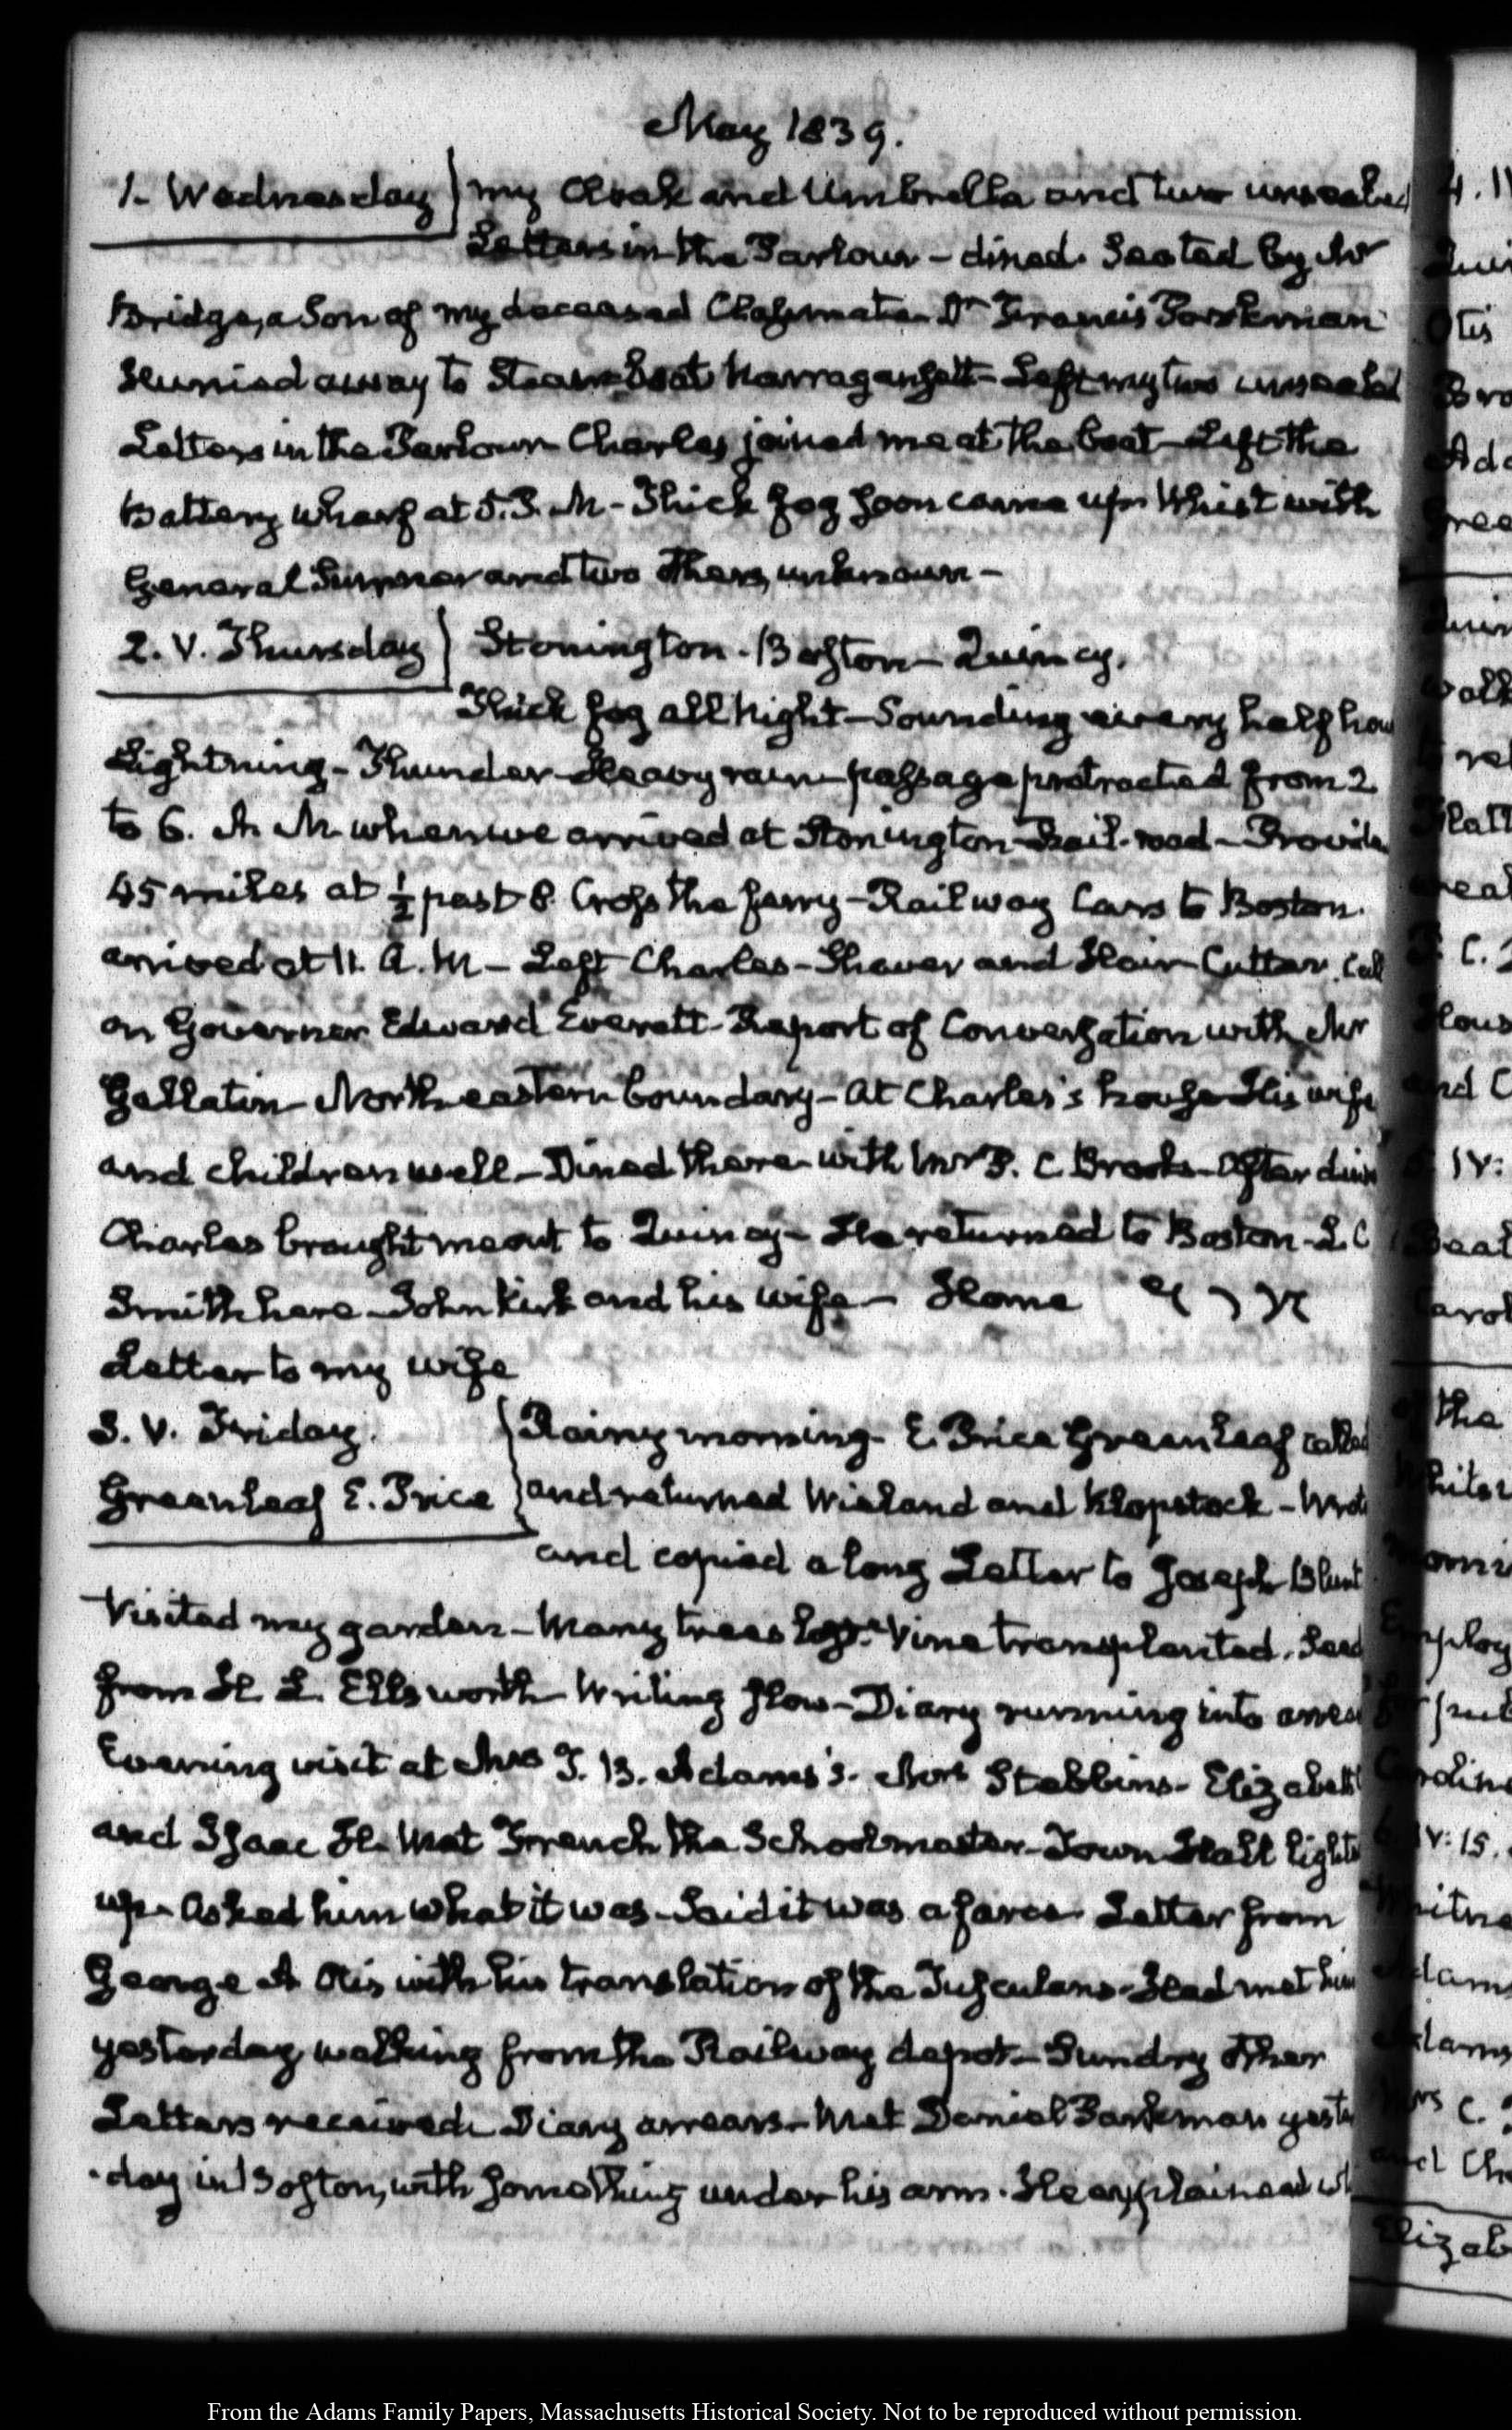 May 1839.
1. Wednesday} my Cloak and Umbrella and two unsealed
Letters in the Parlour – dined. Seated by Mr
Bridge, a Son of my deceased Classmate – Dr Francis Parkman
Hurried away to Steam-boat Narragansett – Left my two unsealed
Letters in the Parlour – Charles joined me at the boat – Left the
Battery wharf at 5. P. M – Thick fog soon came up – Whist with
General Sumner and two others, unknown –
2. V. Thursday} Stonington – Boston – Quincy.
Thick fog all Night – Sounding every half hou
Lightning – Thunder – Heavy rain – passage protracted from 2
to 6. A M. when we arrived at Stonington – Rail-road – Provide
45 miles at ½ past 8. Cross the ferry – Railway Cars to Boston.
arrived at 11. A. M – Left Charles – Shaver and Hair-Cutter. Call
on Governor Edward Everett – Report of Conversation with Mr
Gallatin – North eastern boundary – at Charles's house – His wife
and children well – Dined there – with Mr P. C. Brooks – After din
Charles brought me out to Quincy – He returned to Boston – L. C
Smith here – John Kirk and his wife – Home
Letter to my wife
3. V. Friday. } Rainy morning – E. Price Greenleaf called
Greenleaf E. Price } and returned Wieland and Klopstock – Wrote
and copied a long Letter to Joseph Blunt
Visited my garden – Many trees lost. Vine transplanted. Seed
from H. L. Ellsworth – Writing slow – Diary running into arrea
Evening visit at Mrs T. B. Adams's. Mrs Stebbins – Elizabeth
and Isaac H. Met French the Schoolmaster – Town Hall light
up – Asked him what it was – Said it was a farce – Letter from
George A Otis with his translation of the Tusculans – Had met him
yesterday, walking from the Railway depot – Sundry other
Letters received – Diary arrears – Met Daniel Parkman yeste
-day in Boston, with something under his arm. He explained wh
From the Adams Family Papers, Massachusetts Historical Society. Not to be reproduced without permission.